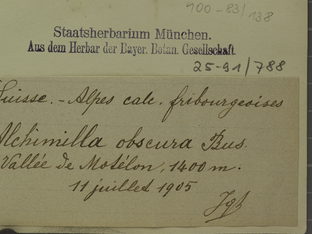 100-83/138
Staatsherbarium München.
Aus dem Herbar der Bayer. Botan. Gesellschaft
25-91/788
Suisse.-Alpes calc. fribourgeoises
Alchimilla obscura Bus.
Vallée de Motélon, 1400 m.
11 juillet 1905